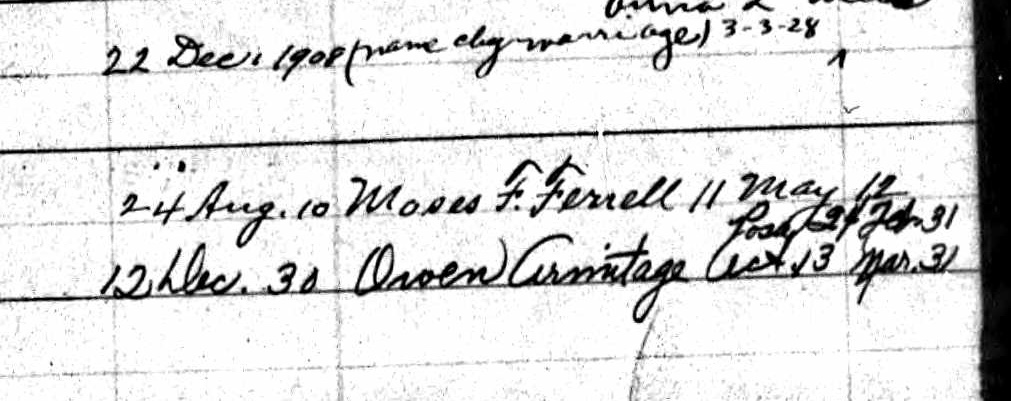 22 Dec. 1908 (name chg marriage) 3-3-28
24 Aug. 10 Moses F. Ferrell 11 May 12
Feb. 31
12 Dec. 30 Owen Armitage 13 Mar. 31